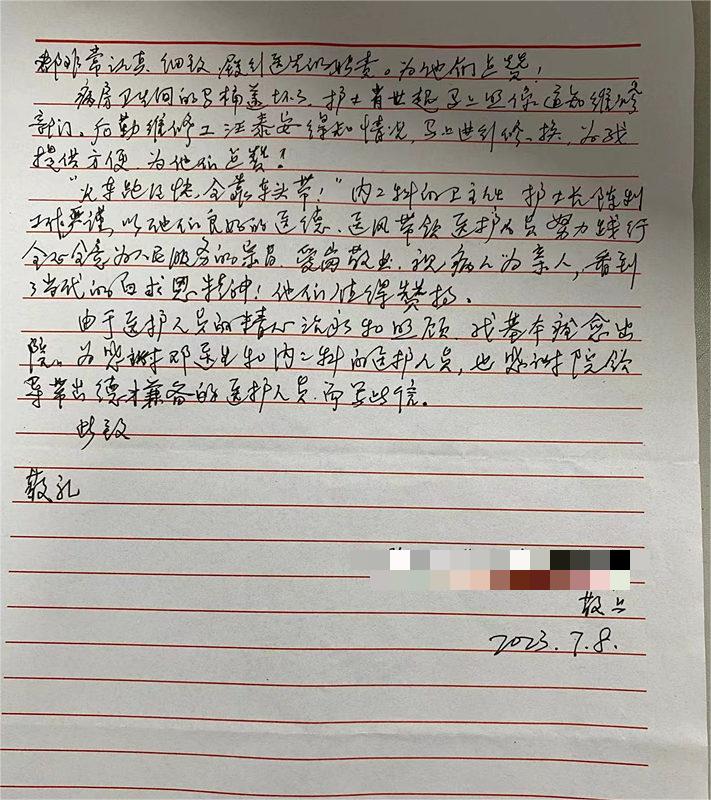 都非常认真细致,履到医生的职责。为他们点赞!
病房卫生间的马桶盖坏了,护士肖世艳马上照像,通知维修
部门。后勤维修工汪泰安得知情况,马上进到修、换,为我
提供方便,为他们点赞!
“火车跑得快,全靠车头带!”内二科的卫主任 护士长陈利
工作严谨,以他们良好的医德、医风带领医护人员努力践行
全心全意为人民服务的宗旨,爱岗敬业,视病人为亲人,看到
了当代的白求恩精神!他们值得赞扬。
由于医护人员的精心治疗和照顾,我基本痊愈出
院。为感谢邓医生和内二科的医护人员,也感谢院领
导带出德才兼备的医护人员,而写此信。
此致
敬礼
敬上
2023.7.8.